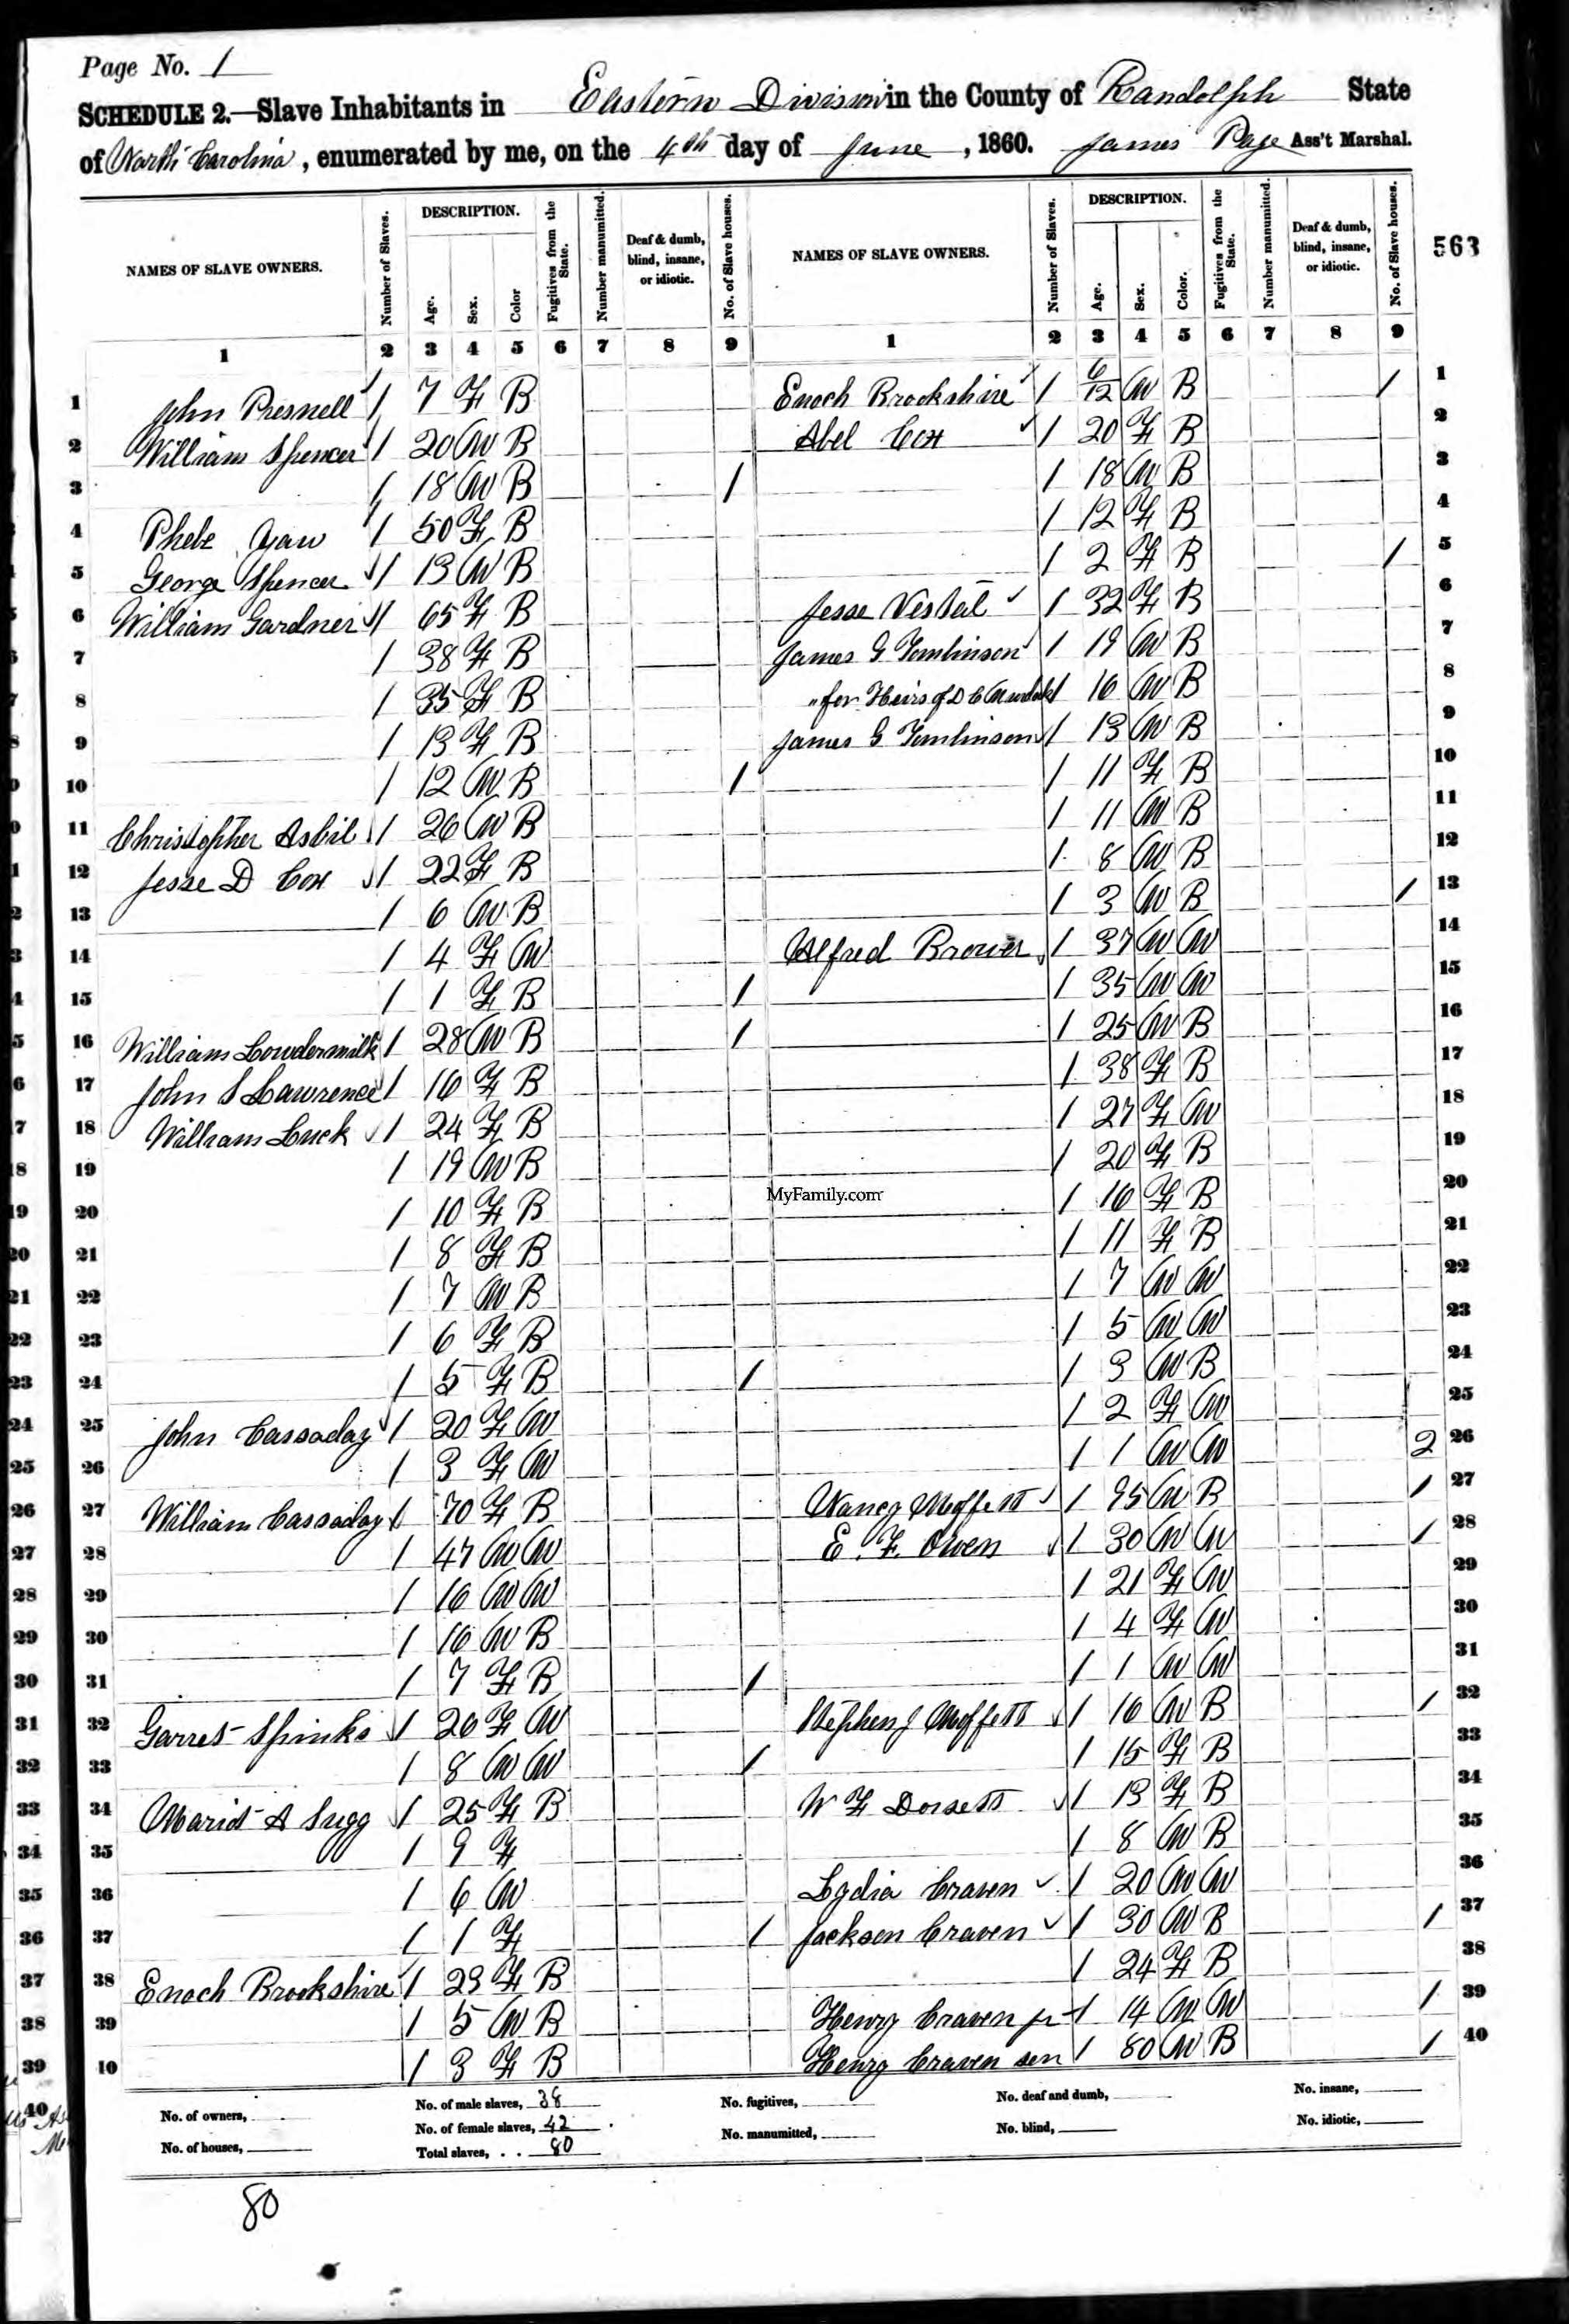 Page No. 1
SCHEDULE 2.—Slave Inhabitants in Eastern Division in the County of Randolph State
of North Carolina, enumerated by me, on the 4th day of June, 1860. James Page Ass't Marshal.
563
NAMES OF SLAVE OWNERS. Number of Slaves. DESCRIPTION. Age. Sex. Color Fugitives from the State. Number manumitted. Deaf & dumb, blind, insane, or idiotic. No. of Slave houses.
1 2 3 4 5 6 7 8 9
1 John Presnell 1 7 F B
2 William Spencer 1 20 M B
3 1 18 M B 1
4 Phebe Yaw 1 50 F B
5 George Spencer 1 13 M B
6 William Gardner 1 65 F B
7 1 38 F B
8 1 35 F B
9 1 13 F B
10 1 12 M B 1
11 Christopher Asbil 1 26 M B
12 Jesse D Cox 1 22 F B
13 1 6 M B
14 1 4 F M
15 1 1 F B 1
16 William Lowdermilk 1 28 M B 1
17 John S Lawrence 1 16 F B
18 William Luck 1 24 F B
19 1 19 M B
20 1 10 F B
21 1 8 F B
22 1 7 M B
23 1 6 F B
24 1 5 F B 1
25 John Cassaday 1 20 F M
26 1 3 F M
27 William Cassaday 1 70 F B
28 1 47 M M
29 1 16 M M
30 1 16 M B
31 1 7 F B 1
32 Garret Spinks 1 26 F M
33 1 8 M M 1
34 A Sugg 1 25 F B
35 1 9 F
36 1 6 M
37 1 1 F 1
38 Enoch Brookshire 1 23 F B
39 1 5 M B
40 1 3 F B
NAMES OF SLAVE OWNERS. Number of Slaves. DESCRIPTION. Age. Sex. Color. Fugitives from the State. Number manumitted. Deaf & dumb, blind, insane, or idiotic. No. of Slave houses.
1 2 3 4 5 6 7 8 9
Enoch Brookshire 1 6/12 M B 1 1
Abel Cox 1 20 F B 2
1 18 M B 3
1 12 F B 4
1 2 F B 1 5
Jesse Vestal 1 32 F B 6
James G Tomlinson 1 19 M B 7
" for Heirs of D C 1 16 M B 8
James G Tomlinson 1 13 M B 9
1 11 F B 10
1 11 M B 11
1 8 M B 12
1 3 M B 1 13
Alfred Brower 1 37 M M 14
1 35 M M 15
1 25 M B 16
1 38 F B 17
1 27 F M 18
1 20 F B 19
1 16 F B 20
1 11 F B 21
1 7 M M 22
1 5 M M 23
1 3 M B 24
1 2 F M 25
1 1 M M 2 26
Nancy Moffett 1 95 M B 1 27
E. F. Owen 1 30 M M 1 28
1 21 F M 29
1 4 F M 30
1 1 M M 31
Stephen J Moffett 1 16 M B 1 32
1 15 F B 33
W F Dorsett 1 13 F B 34
1 8 M B 35
Lydia Craven 1 20 M M 36
Jackson Craven 1 30 M B 1 37
1 24 F B 38
Henry Craven jr 1 14 M M 1 39
Henry Craven sen 1 80 M B 1 40
MyFamily.com
No. of owners, No. of male slaves, 38 No. fugitives, No. deaf and dumb, No. insane,
No. of houses, No. of female slaves, 42 No. manumitted, No. blind, No. idiotic,
Total slaves, . . 80
80